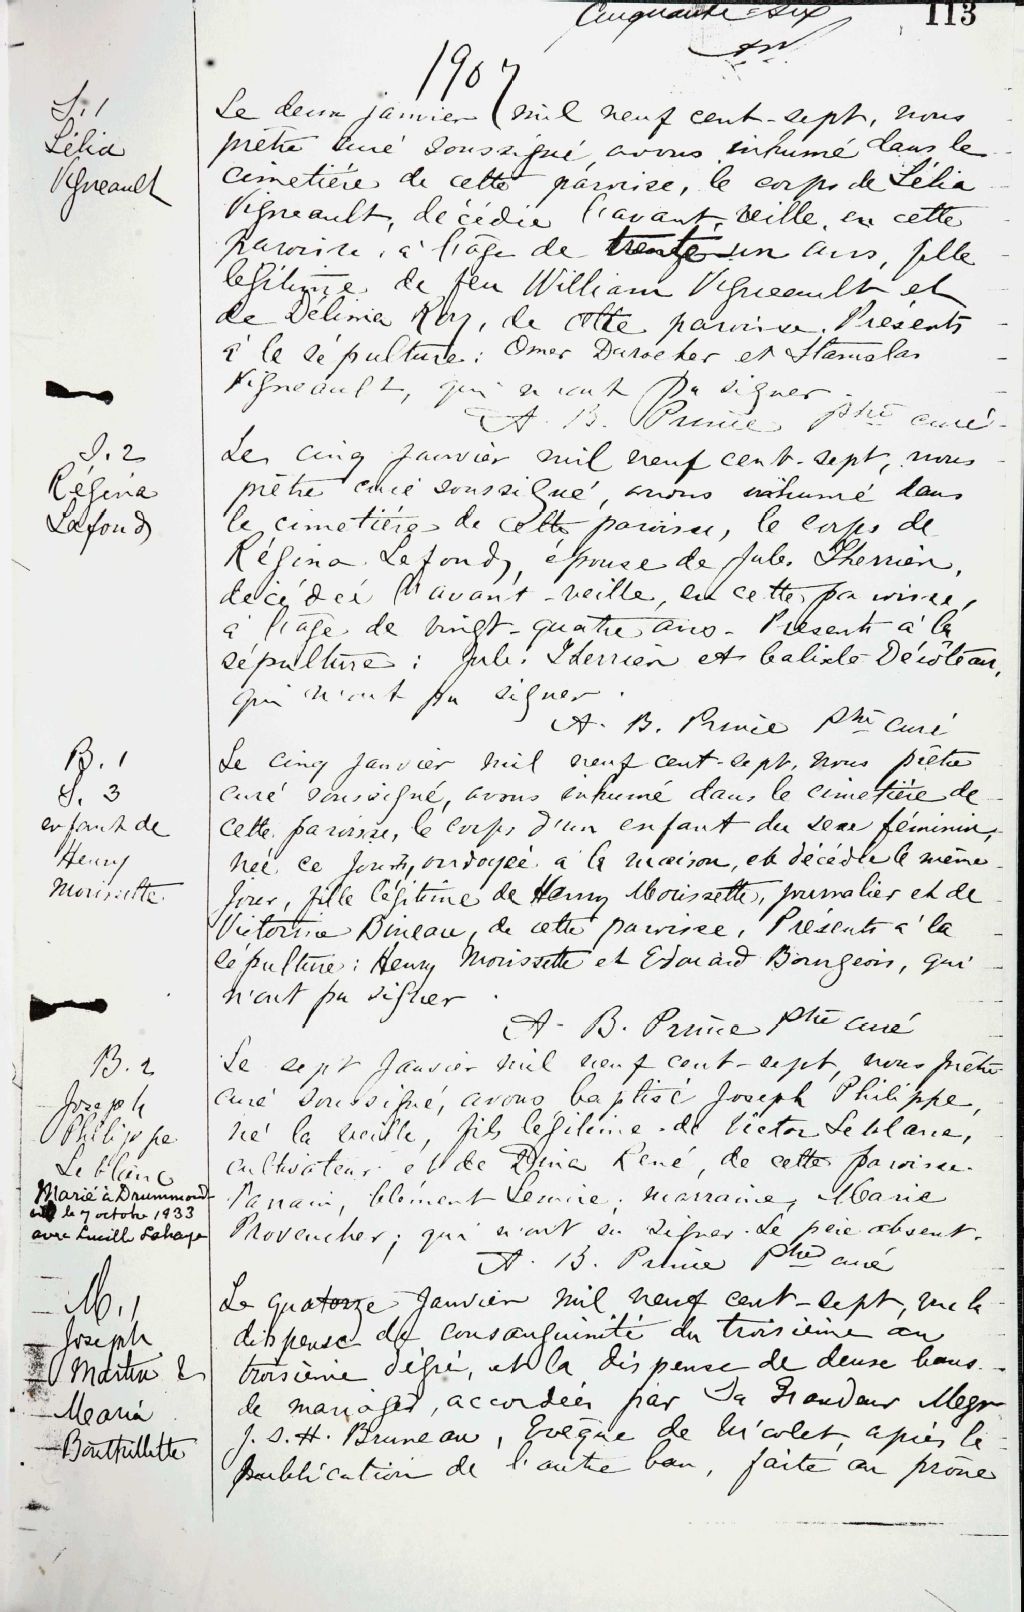 Cinquante-six
113
1907
S. 1
Lélia
Vigneault
Le deux janvier mil neuf cent-sept, nous
prêtre curé soussigné, avons inhumé dans le
cimetière de cette paroisse, le corps de Lélia
Vigneault, décédée l'avant-veille, en cette
paroisse, à l'âge de trente-un ans, fille
légitime de feu William Vigneault et
de Délima Roy, de cette paroisse. Présents
à la sépulture: Omer Durocher et Stanislas
Vigneault, qui n'ont pu signer.
A. B. Prince Ptre curé
S. 2
Régina
Lafond
Le cinq janvier mil neuf cent-sept, nous
prêtre curé soussigné, avons inhumé dans
le cimetière de cette paroisse, le corps de
Régina Lafond, épouse de Jules Therrien,
décédée l'avant-veille, en cette paroisse,
à l'âge de vingt-quatre ans. Présents à la
sépulture: Jules Therrien et Calixte Décôteau,
qui n'ont pu signer.
A. B. Prince Ptre curé
B. 1
S. 3
enfant de
Henry
Morissette
Le cinq janvier mil neuf cent-sept, nous prêtre
curé soussigné, avons inhumé dans le cimetière de
cette paroisse, le corps d'un enfant du sexe féminin,
née ce jour, ondoyée à la maison, et décédée le même
jour, fille légitime de Henry Morissette, journalier et de
Victorine Bineau, de cette paroisse. Présents à la
sépulture: Henry Morissette et Edouard Bourgeois, qui
n'ont pu signer.
A. B. Prince Ptre curé
B. 2
Joseph
Philippe
Leblanc
Marié à Drummond-
le 7 octobre 1933
avec Lucille Lahaye
Le sept janvier mil neuf cent-sept, nous prêtre
curé soussigné, avons baptisé Joseph Philippe,
né la veille, fils légitime de Victor Leblanc,
cultivateur et de Dina René, de cette paroisse.
Parrain, Clément Lemire; marraine, Marie
Provencher; qui n'ont su signer. Le père absent.
A. B. Prince Ptre curé
M. 1
Joseph
Martin &
Maria
Bouthillette
Le quatorze janvier mil neuf cent-sept, vu la
dispense de consanguinité du troisième au
troisième dégré, et la dispense de deux bans
de mariage, accordées par Sa Grandeur Mgr
J. S. H. Bruneau, Evêque de Nicolet, après la
publication de l'autre ban, faite au prône